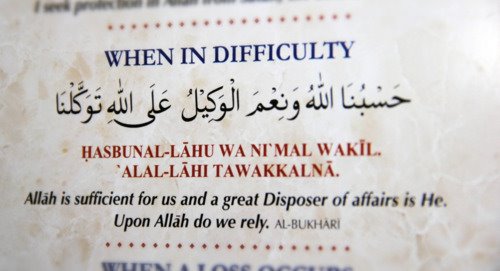 I seek protection in Allāh from
WHEN IN DIFFICULTY
حَسْبُنَا اللهُ وَنِعْمَ الْوَكِيْلُ عَلَى اللهِ تَوَكَّلْنَا
ḤASBUNAL-LĀHU WA NI`MAL WAKĪL.
`ALAL-LĀHI TAWAKKALNĀ.
Allāh is sufficient for us and a great Disposer of affairs is He.
Upon Allāh do we rely. AL-BUKHĀRĪ
WHEN A LOSS OCCURS